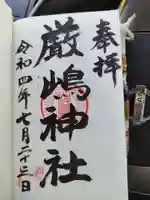 奉拝
厳嶋神社
令和四年七月二十三日